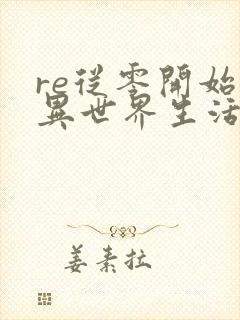 re從零開始
異世界生活
姜素拉